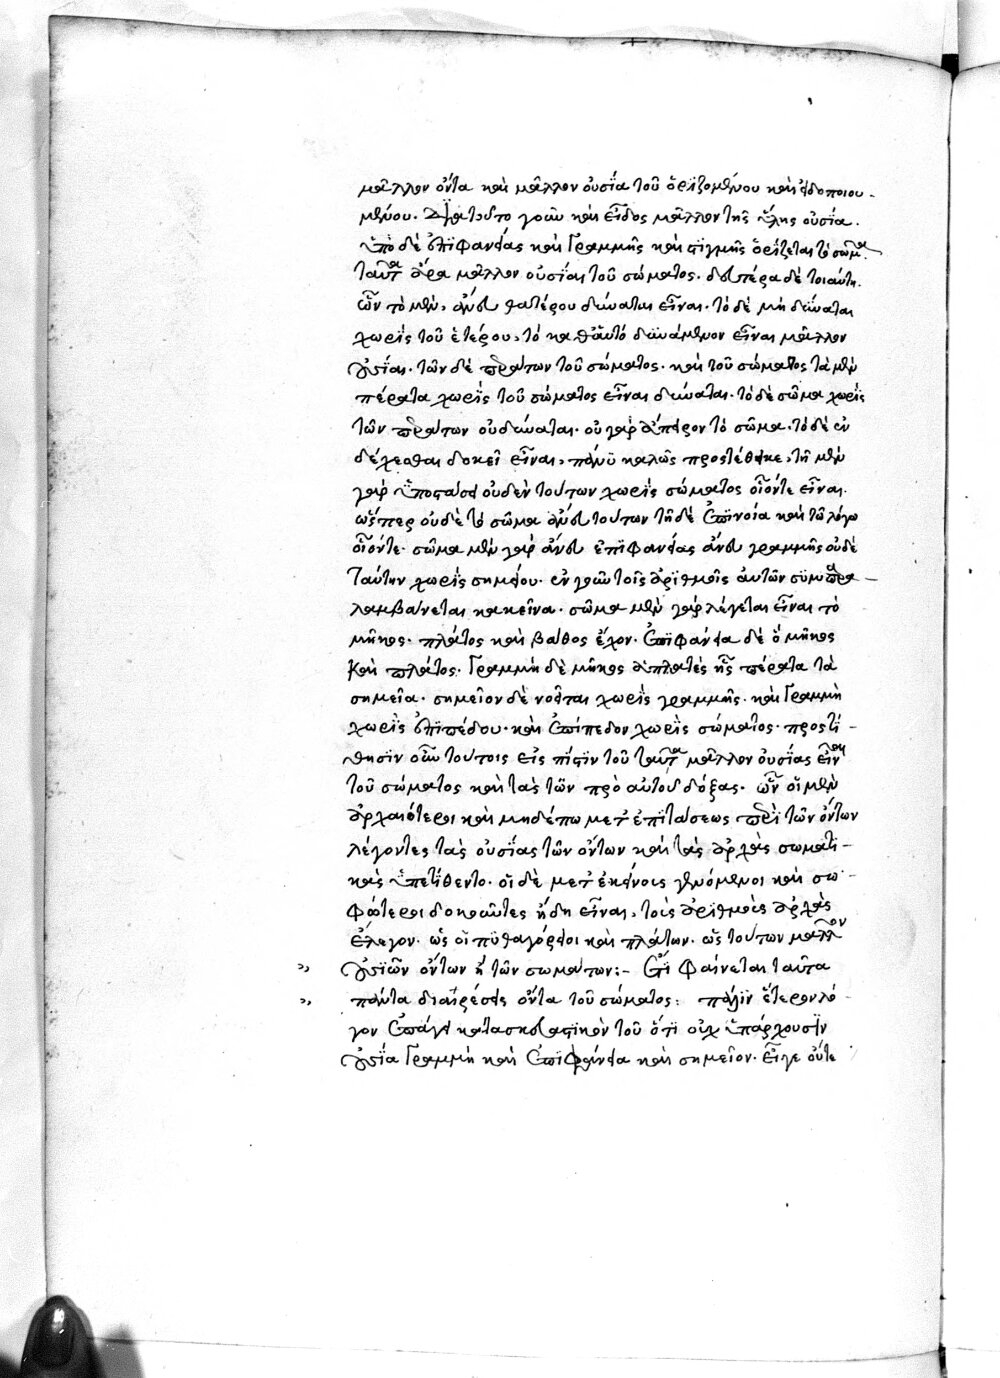 μᾶλλον ὄντα καὶ μᾶλλον οὐσία τοῦ ὁριζομένου καὶ εἰδοποιου-
μένου. Διατοῦτο γοῦν καὶ εἶδος μᾶλλον τῆς ὕλης οὐσία.
Ὑπὸ δὲ ἐπιφανείας καὶ Γραμμῆς καὶ στιγμῆς ὁρίζεται τὸ σῶμα.
ταῦτα ἄρα μᾶλλον οὐσίαι τοῦ σώματος. δευτέρα δὲ τοιαύτη.
ὧν τὸ μὲν, ἄνευ θατέρου δύναται εἶναι. τὸ δὲ μὴ δύναται
χωρὶς τοῦ ἑτέρου, τὸ καθ' αὑτό δυνάμενον εἶναι μᾶλλον
οὐσίαι. τῶν δὲ περάτων τοῦ σώματος. καὶ τοῦ σώματος τὰ μὲν
πέρατα χωρὶς τοῦ σώματος εἶναι δύναται. τὸ δὲ σῶμα χωρὶς
τῶν περάτων οὐ δύναται. οὐ γὰρ ἄπειρον τὸ σῶμα. τὸ δὲ ἐν
δέχεσθαι δοκεῖ εἶναι, πάνυ καλῶς προστέθεικε, τῇ μὲν
γὰρ ὑποστάσει οὐδὲν τούτων χωρὶς σώματος οἷόντε εἶναι.
ὥσπερ οὐδὲ τὸ σῶμα ἄνευ τούτων τῇ δὲ ἐπινοία καὶ τῶ λόγω
οἷόντε. σῶμα μὲν γὰρ ἄνευ ἐπιφανείας ἄνευ γραμμῆς οὐδὲ
ταύτην χωρὶς σημείου. ἐν γοῦν τοῖς ἀριθμοῖς αὐτῶν συμπαρα-
λαμβάνεται κακεῖνα. σῶμα μὲν γὰρ λέγεται εἶναι τὸ
μῆκος. πλάτος καὶ βάθος ἔχον. Ἐπιφάνεια δὲ ὁ μῆκος
καὶ πλάτος. Γραμμὴ δὲ μῆκος ἀπλατὲς ἧς πέρατα τὰ
σημεῖα. σημεῖον δὲ νοεῖται χωρὶς γραμμῆς. καὶ Γραμμὴ
χωρὶς ἐπιπέδου. καὶ Ἐπίπεδον χωρὶς σώματος. προστί-
θησιν οὖν τούτοις εἰς πίστιν τοῦ ταῦτα μᾶλλον οὐσίας εἶναι
τοῦ σώματος καὶ τὰς τῶν πρὸ αὐτοῦ δόξας. ὧν οἱ μὲν
ἀρχαιότεροι καὶ μηδέπω μετ' ἐπιστάσεως περὶ τῶν ὄντων
λέγοντες τὰς οὐσίας τῶν ὄντων καὶ τὰς ἀρχὰς σωματι-
κὰς ὑπετίθεντο. οἱ δὲ μετ' ἐκείνοις γενόμενοι καὶ σο-
φώτεροι δοκοῦντες ἤδη εἶναι, τοὺς ἀριθμοὺς ἀρχὰς
ἔλεγον. ὡς οἱ πυθαγόρειοι καὶ πλάτων. ὡς τούτων μᾶλλον
οὐσιῶν ὄντων ἢ τῶν σωμάτων:- Ἔτι φαίνεται ταῦτα
πάντα διαιρέσεις ὄντα τοῦ σώματος: πάλιν ἕτερον λό-
γον ἐπάγει κατασκευαστικὸν τοῦ ὅτι οὐχ ὑπάρχουσιν
οὐσία Γραμμὴ καὶ Ἐπιφάνεια καὶ σημεῖον. εἴγε οὔτε